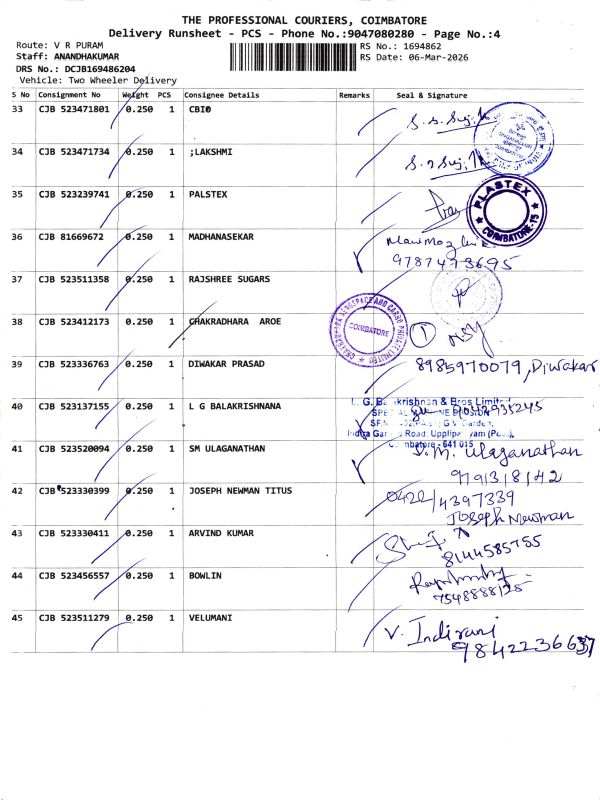 THE PROFESSIONAL COURIERS, COIMBATORE
Delivery Runsheet - PCS - Phone No.:9047080280 - Page No.:4
Route: V R PURAM RS No.: 1694862
Staff: ANANDHAKUMAR RS Date: 06-Mar-2026
DRS No.: DCJB169486204
Vehicle: Two Wheeler Delivery
S No Consignment No Weight PCS Consignee Details Remarks Seal & Signature
33 CJB 523471801 0.250 1 CBIO
34 CJB 523471734 0.250 1 ;LAKSHMI
35 CJB 523239741 0.250 1 PALSTEX
PLASTEX
COIMBATORE-15
36 CJB 81669672 0.250 1 MADHANASEKAR
9787473695
37 CJB 523511358 0.250 1 RAJSHREE SUGARS
38 CJB 523412173 0.250 1 CHAKRADHARA AROE
CHAKRADHARA AEROSPACE AND CARGO PRIVATE LIMITED
COIMBATORE
1
39 CJB 523336763 0.250 1 DIWAKAR PRASAD 8985970079, Diwakar
40 CJB 523137155 0.250 1 L G BALAKRISHNANA
L. G. Balakrishnan & Bros Limited
Road, Uppilipalayam (Post),
Coimbatore - 641 015
41 CJB 523520094 0.250 1 SM ULAGANATHAN S.M. Ulaganathan
9791318142
42 CJB 523330399 0.250 1 JOSEPH NEWMAN TITUS 0422/4397339
Joseph Newman
43 CJB 523330411 0.250 1 ARVIND KUMAR
8144585755
44 CJB 523456557 0.250 1 BOWLIN
7548888125
45 CJB 523511279 0.250 1 VELUMANI V. Indirani
9842236637